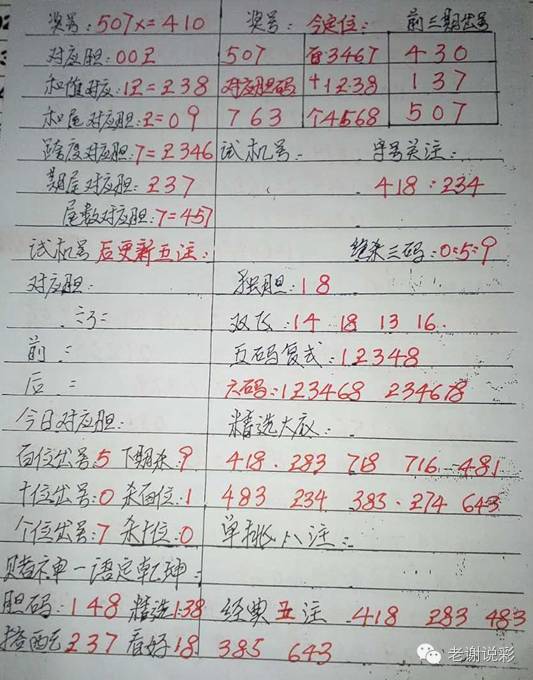 奖号:507x=410 奖号: 今定位: 前三期出号
对应胆:002 507 百:3467 430
和值对应:12=238 对应胆码 十1238 137
和尾对应胆:2=09 763 个4568 507
跨度对应胆:7=2346 试机号: 字号关注:
期尾对应胆:237 418:234
尾数对应胆:7=457
试机号后更新五注: 绝杀三码:0:5:9
对应胆: 独胆:18
双飞:14 18 13 16.
前: 五码复式:12348
后: 六码:123468 234678
今日对应胆: 精选大底:
百位出号:5 下期杀:9 418. 283 718 716 481
十位出号:0 杀百位:1 483 234 383. 274 643
个位出号:7 杀十位:0 单挑八注:
赌神一语定乾坤:
胆码:148 精选138 经典五注 418 283 483
搭配237 看好18 385 643
老谢说彩